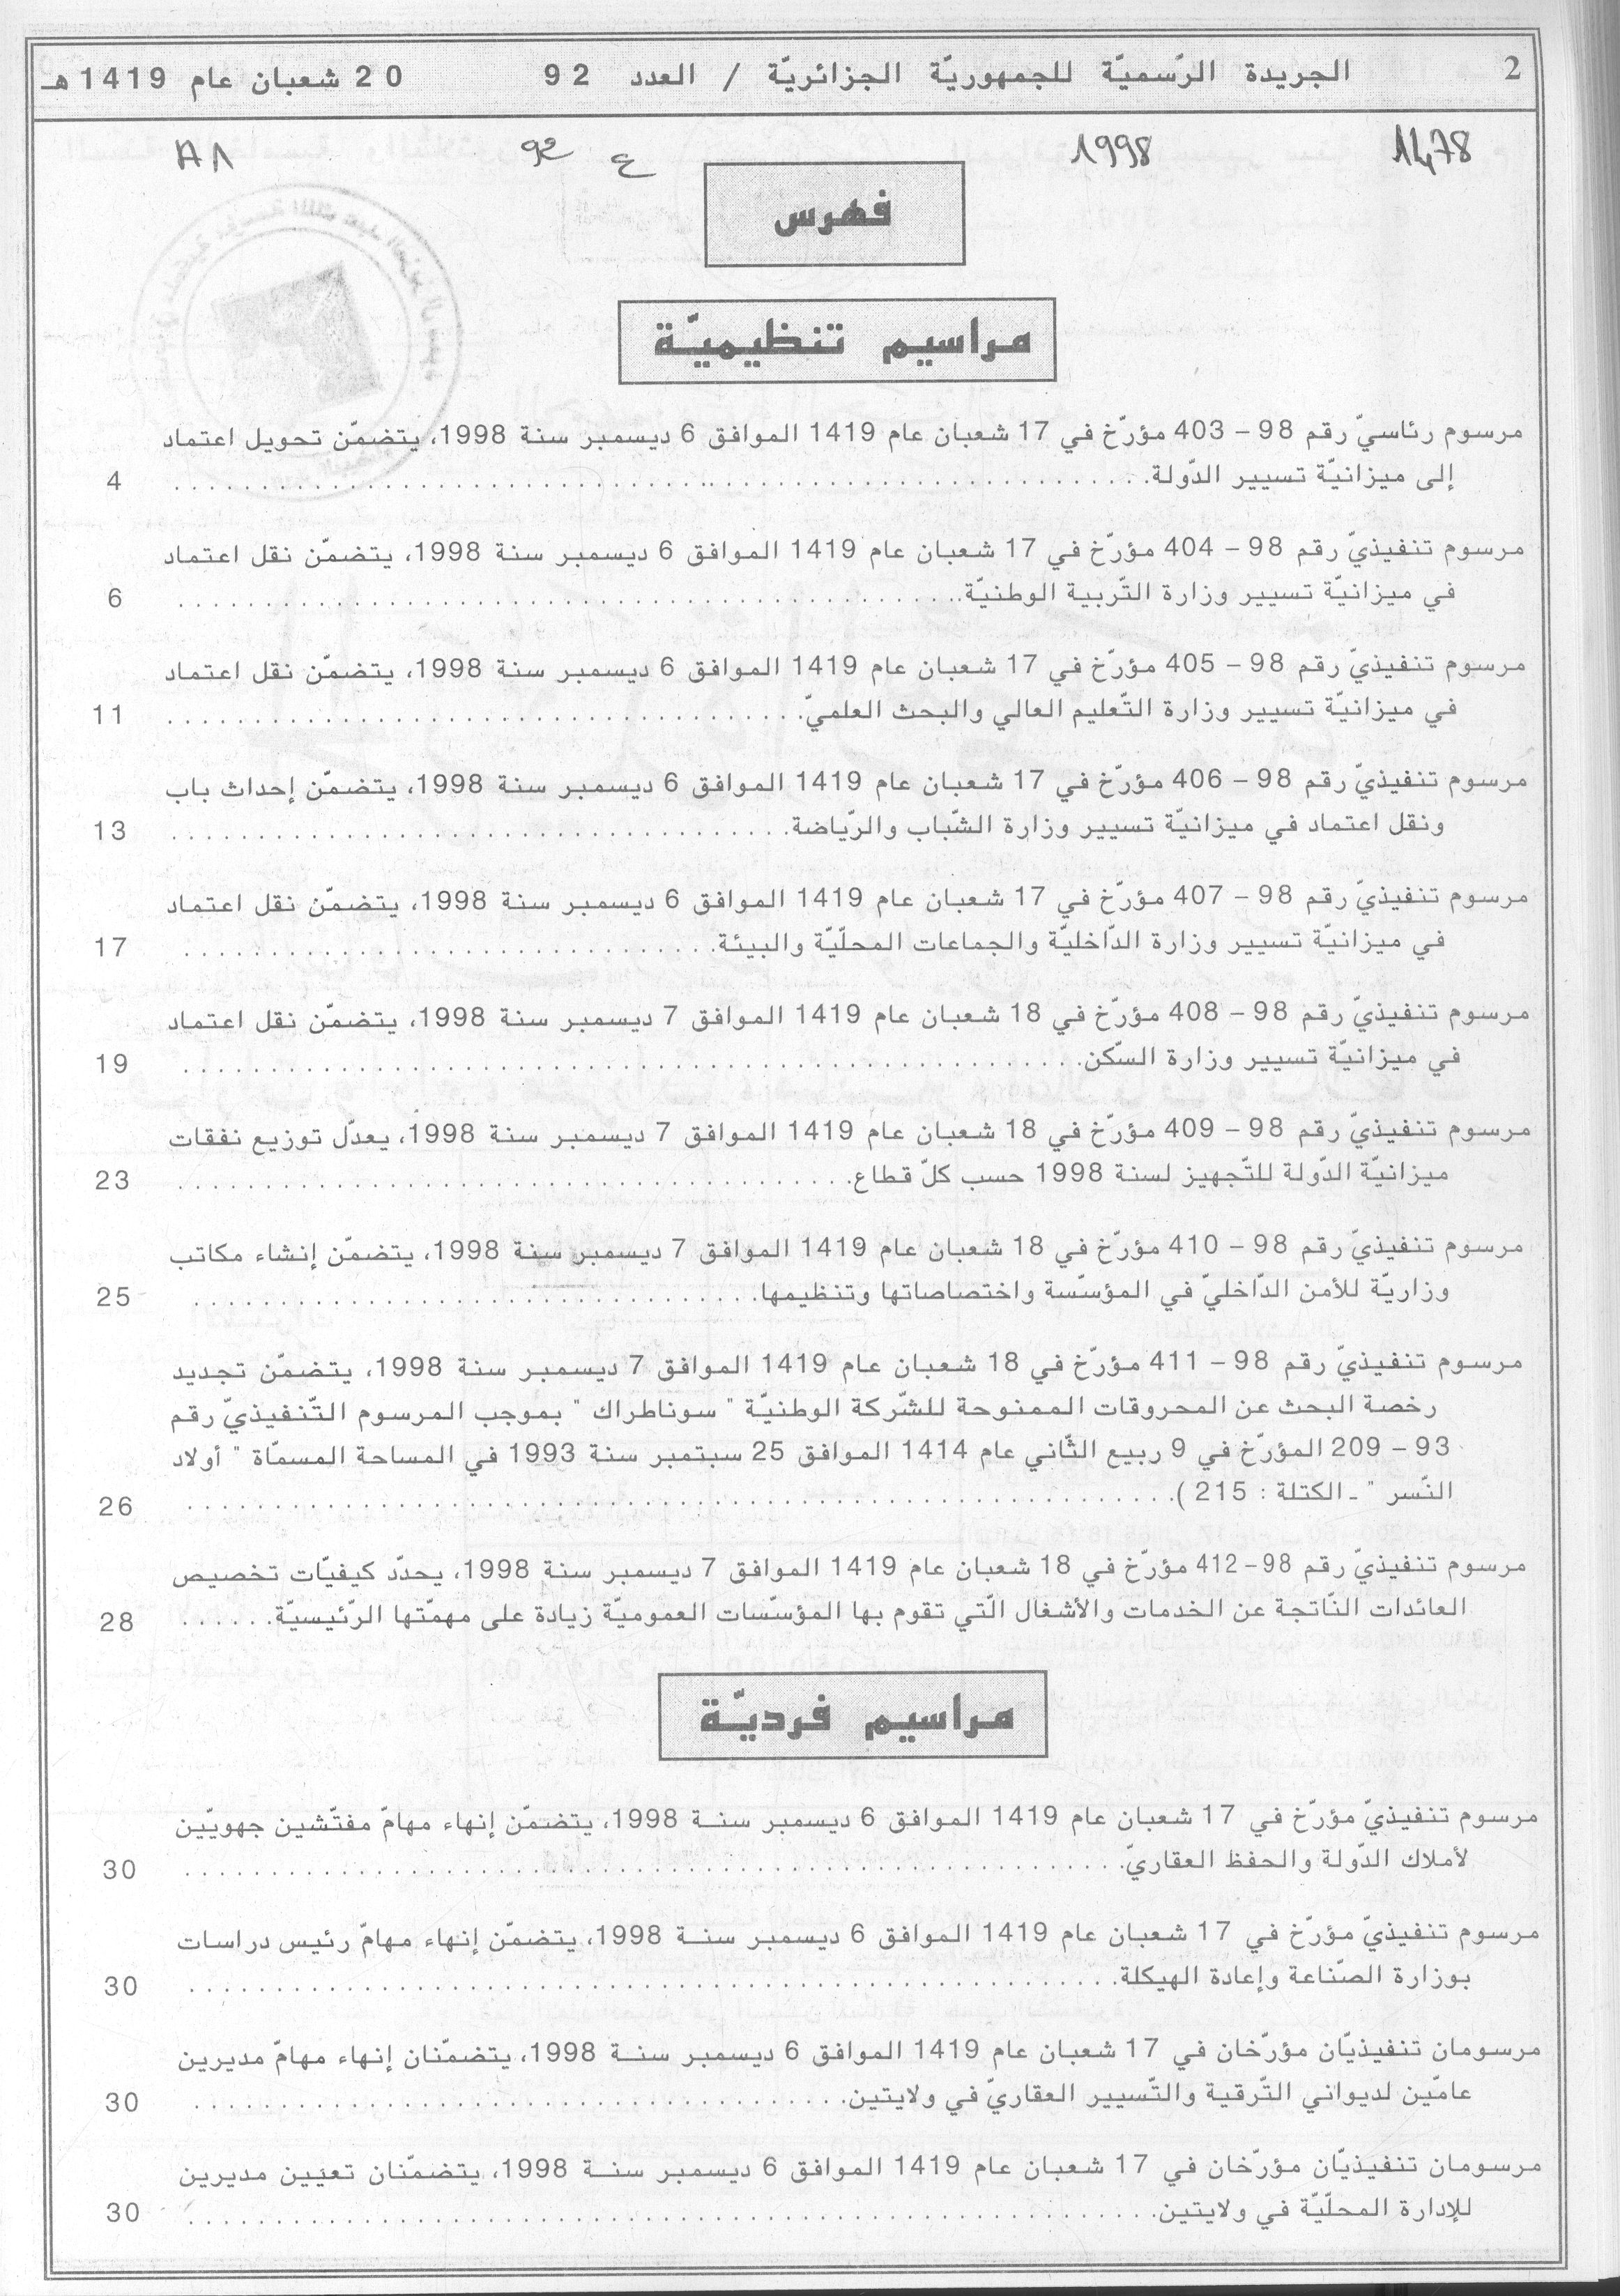 2 الجريدة الرّسميّة للجمهوريّة الجزائريّة / العدد 92 20 شعبان عام 1419 هـ
1478 1998 ع 92 A1
فهرس
مراسيم تنظيميّة
مرسوم رئاسيّ رقم 98 – 403 مؤرّخ في 17 شعبان عام 1419 الموافق 6 ديسمبر سنة 1998، يتضمّن تحويل اعتماد
إلى ميزانيّة تسيير الدّولة. . . . . . . . . . 4
مرسوم تنفيذيّ رقم 98 – 404 مؤرّخ في 17 شعبان عام 1419 الموافق 6 ديسمبر سنة 1998، يتضمّن نقل اعتماد
في ميزانيّة تسيير وزارة التّربية الوطنيّة. . . . . . . . . . 6
مرسوم تنفيذيّ رقم 98 – 405 مؤرّخ في 17 شعبان عام 1419 الموافق 6 ديسمبر سنة 1998، يتضمّن نقل اعتماد
في ميزانيّة تسيير وزارة التّعليم العالي والبحث العلميّ. . . . . . . . . . 11
مرسوم تنفيذيّ رقم 98 – 406 مؤرّخ في 17 شعبان عام 1419 الموافق 6 ديسمبر سنة 1998، يتضمّن إحداث باب
ونقل اعتماد في ميزانيّة تسيير وزارة الشّباب والرّياضة. . . . . . . . . . 13
مرسوم تنفيذيّ رقم 98 – 407 مؤرّخ في 17 شعبان عام 1419 الموافق 6 ديسمبر سنة 1998، يتضمّن نقل اعتماد
في ميزانيّة تسيير وزارة الدّاخليّة والجماعات المحلّيّة والبيئة. . . . . . . . . . 17
مرسوم تنفيذيّ رقم 98 – 408 مؤرّخ في 18 شعبان عام 1419 الموافق 7 ديسمبر سنة 1998، يتضمّن نقل اعتماد
في ميزانيّة تسيير وزارة السّكن. . . . . . . . . . 19
مرسوم تنفيذيّ رقم 98 – 409 مؤرّخ في 18 شعبان عام 1419 الموافق 7 ديسمبر سنة 1998، يعدّل توزيع نفقات
ميزانيّة الدّولة للتّجهيز لسنة 1998 حسب كلّ قطاع. . . . . . . . . . 23
مرسوم تنفيذيّ رقم 98 – 410 مؤرّخ في 18 شعبان عام 1419 الموافق 7 ديسمبر سنة 1998، يتضمّن إنشاء مكاتب
وزاريّة للأمن الدّاخليّ في المؤسّسة واختصاصاتها وتنظيمها. . . . . . . . . . 25
مرسوم تنفيذيّ رقم 98 – 411 مؤرّخ في 18 شعبان عام 1419 الموافق 7 ديسمبر سنة 1998، يتضمّن تجديد
رخصة البحث عن المحروقات الممنوحة للشّركة الوطنيّة " سوناطراك " بموجب المرسوم التّنفيذيّ رقم
93 – 209 المؤرّخ في 9 ربيع الثّاني عام 1414 الموافق 25 سبتمبر سنة 1993 في المساحة المسمّاة " أولاد
النّسر " ـ الكتلة : 215 ). . . . . . . . . . 26
مرسوم تنفيذيّ رقم 98 – 412 مؤرّخ في 18 شعبان عام 1419 الموافق 7 ديسمبر سنة 1998، يحدّد كيفيّات تخصيص
العائدات النّاتجة عن الخدمات والأشغال الّتي تقوم بها المؤسّسات العموميّة زيادة على مهمّتها الرّئيسيّة. . . . . . 28
مراسيم فرديّة
مرسوم تنفيذيّ مؤرّخ في 17 شعبان عام 1419 الموافق 6 ديسمبر سنـة 1998، يتضمّن إنهاء مهامّ مفتّشين جهويّين
لأملاك الدّولة والحفظ العقاريّ. . . . . . . . . . 30
مرسوم تنفيذيّ مؤرّخ في 17 شعبان عام 1419 الموافق 6 ديسمبر سنـة 1998، يتضمّن إنهاء مهامّ رئيس دراسات
بوزارة الصّناعة وإعادة الهيكلة. . . . . . . . . . 30
مرسومان تنفيذيّان مؤرّخان في 17 شعبان عام 1419 الموافق 6 ديسمبر سنـة 1998، يتضمّنان إنهاء مهامّ مديرين
عامّين لديواني التّرقية والتّسيير العقاريّ في ولايتين. . . . . . . . . . 30
مرسومان تنفيذيّان مؤرّخان في 17 شعبان عام 1419 الموافق 6 ديسمبر سنـة 1998، يتضمّنان تعيين مديرين
للإدارة المحلّيّة في ولايتين. . . . . . . . . . 30